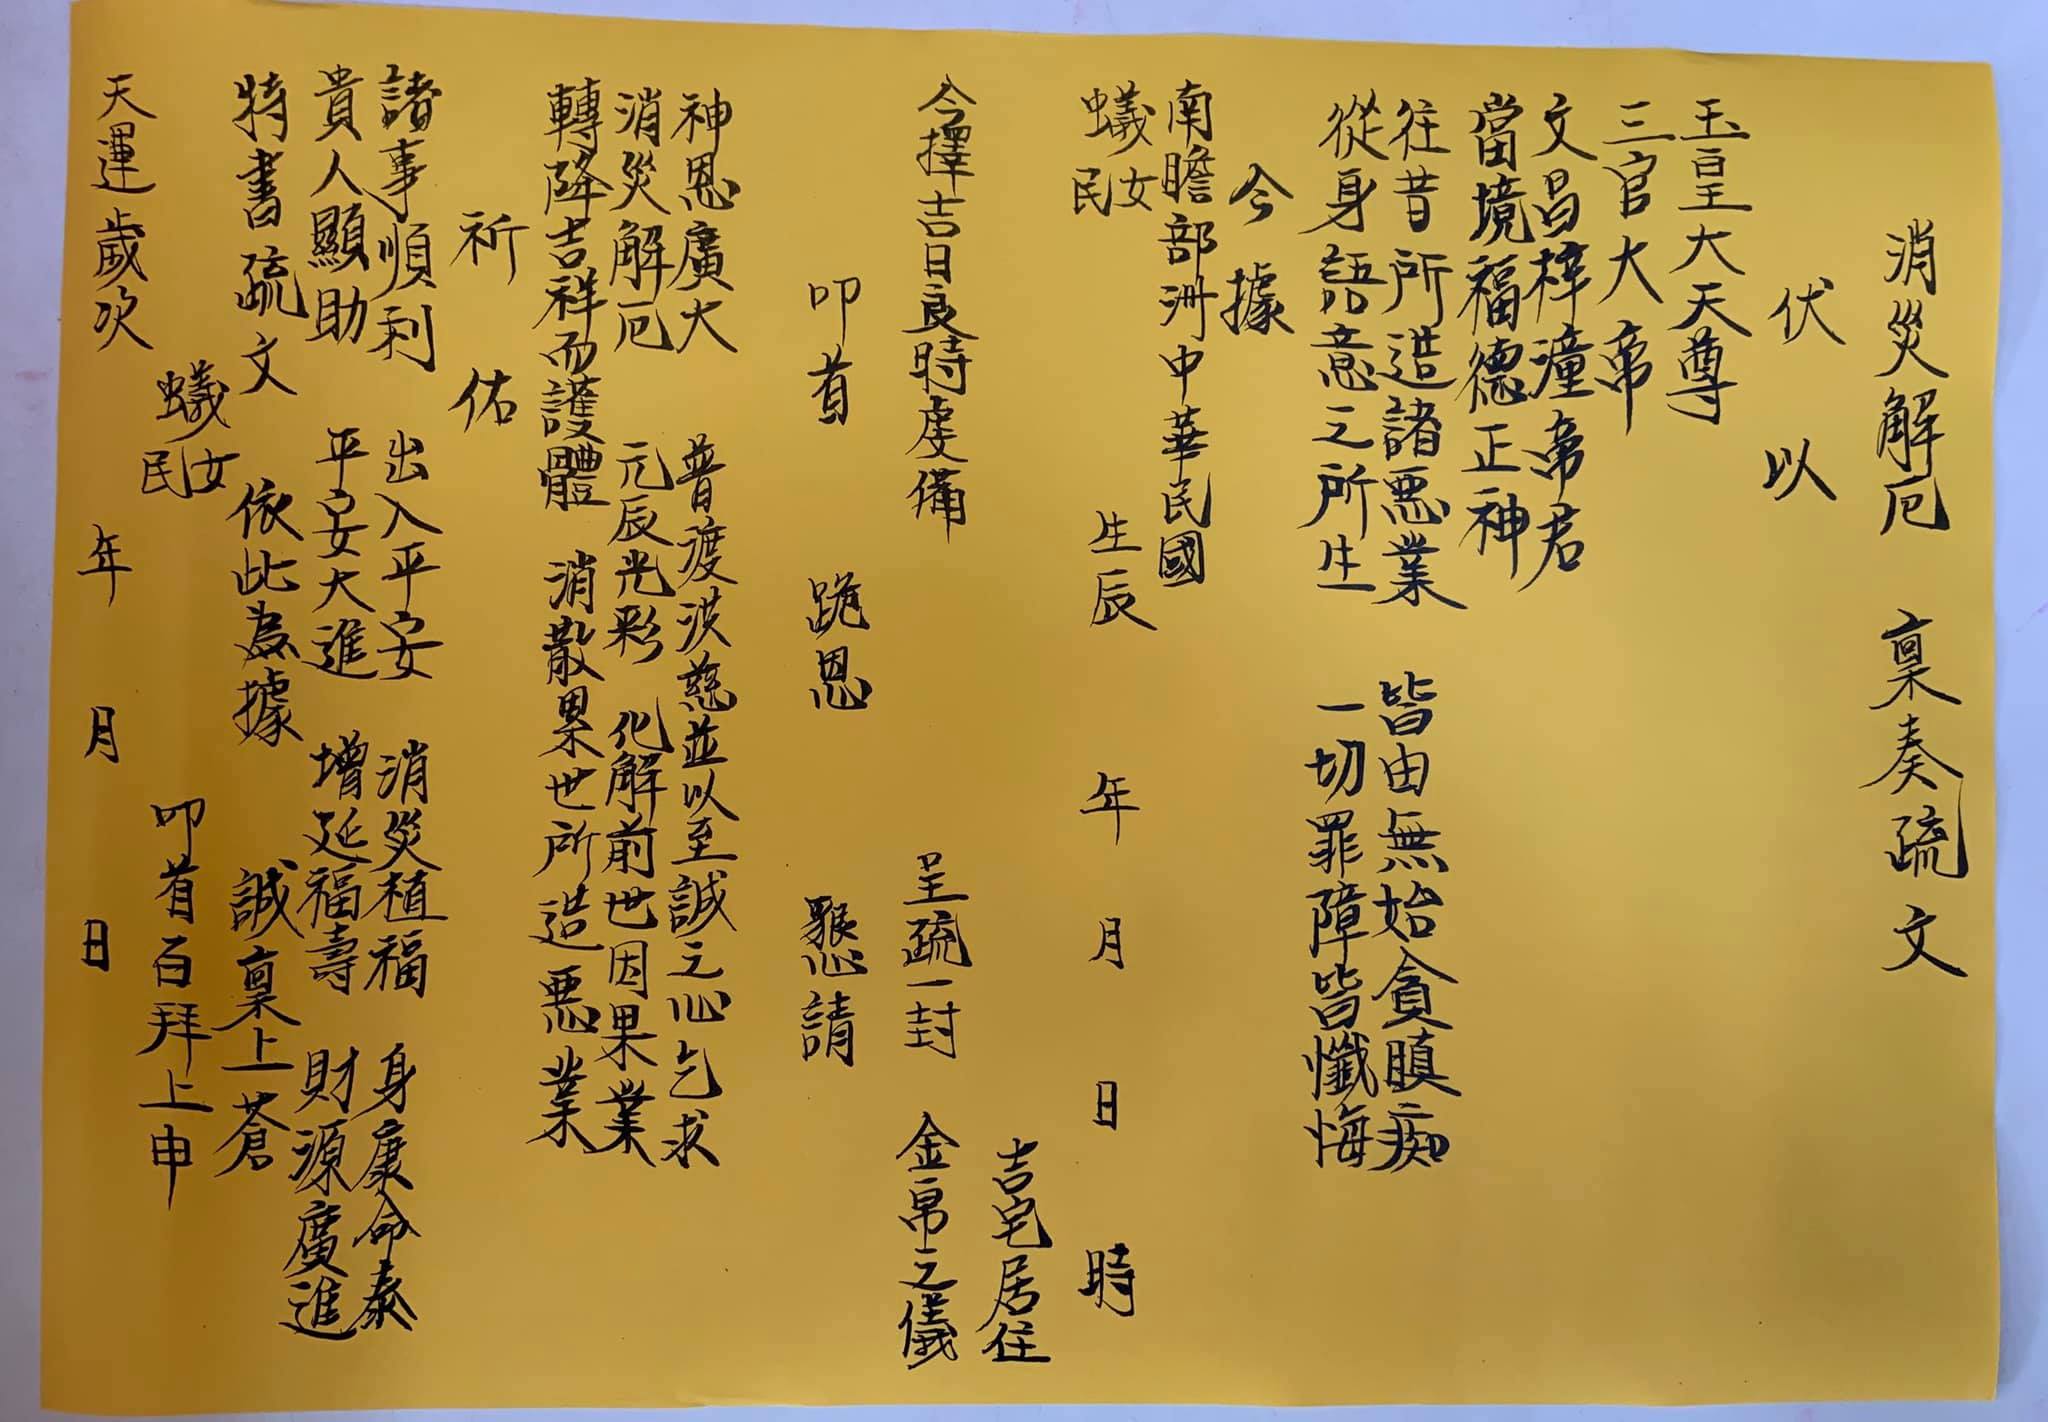 消災解厄 稟奏疏文
伏以
玉皇大天尊
三官大帝
文昌梓潼帝君
當境福德正神
往昔所造諸惡業 皆由無始貪瞋痴
從身語意之所生 一切罪障皆懺悔
今據
南瞻部洲中華民國
蟻女民 生辰 年 月 日 時
吉宅居住
今擇吉日良時虔備 呈疏一封 金帛之儀
叩首 跪恩 懇請
神恩廣大 普渡洪慈並以至誠之心乞求
消災解厄 元辰光彩 化解前世因果業
轉降吉祥而護體 消散累世所造惡業
祈佑
諸事順利 出入平安 消災植福 身康命泰
貴人顯助 平安大進 增延福壽 財源廣進
特書疏文 依此為據 誠稟上蒼
蟻女民 叩首百拜上申
天運歲次 年 月 日